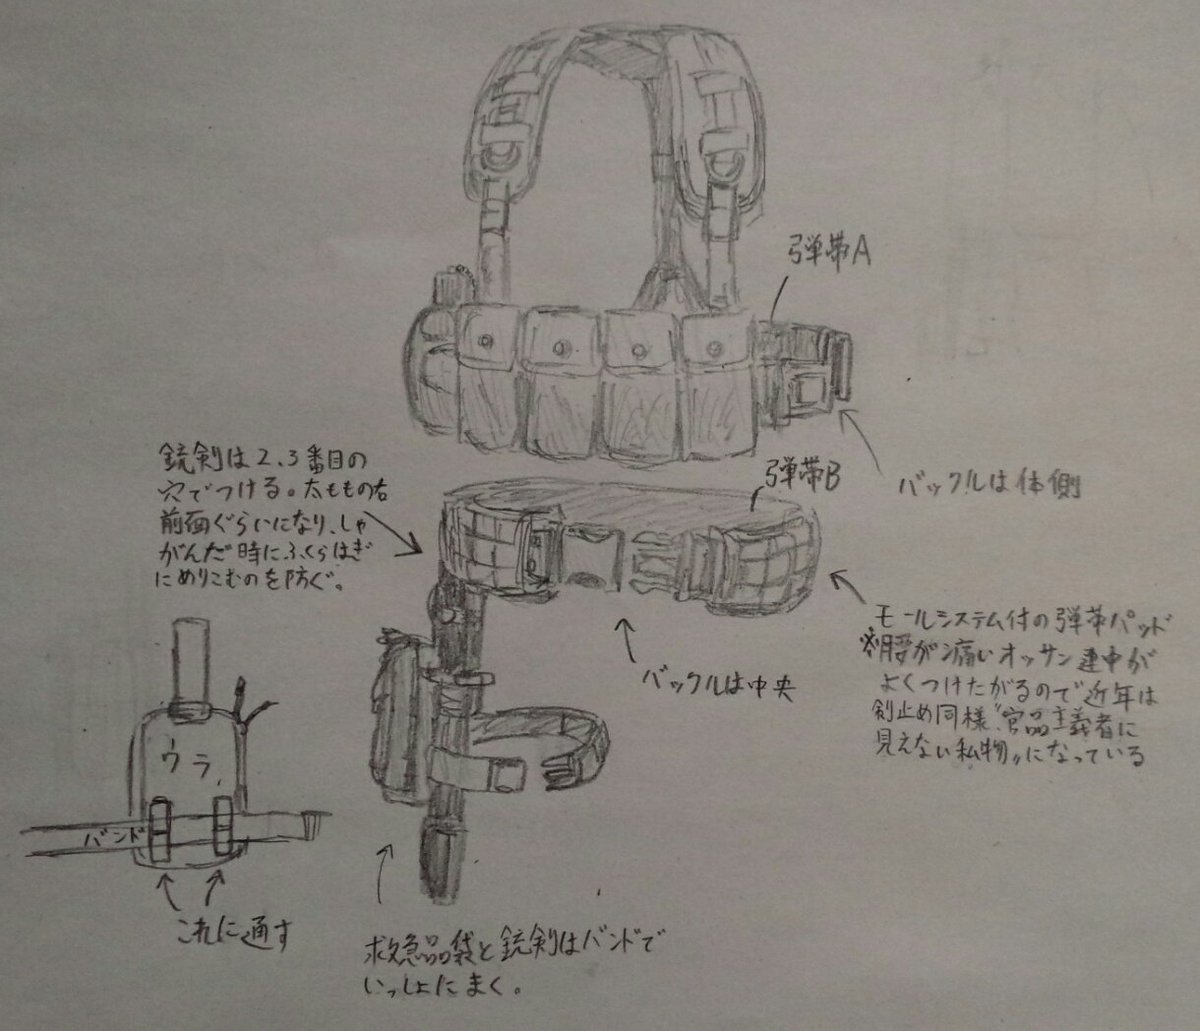 弾帯A
バックルは体側
銃剣は2.3番目の
穴でつける。太ももの右
前面ぐらいになり、しゃ
がんだ時にふくらはぎ
にめりこむのを防ぐ。
弾帯B
バックルは中央
モールシステム付の弾帯パッド
※腰が痛いオッサン連中が
よくつけたがるので近年は
剣止め同様〝官品主義者に
見えない私物〟になっている
ウラ
バンド
これに通す
救急品袋と銃剣はバンドで
いっしょにまく。